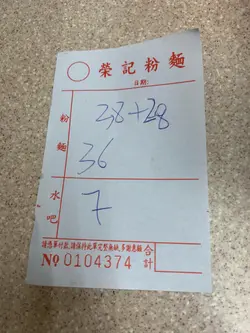 榮記粉麵
日期:
粉麵
28+28
36
水吧
7
請憑單付款,請保持此單完整無缺,多謝惠顧
合計
№ 0104374